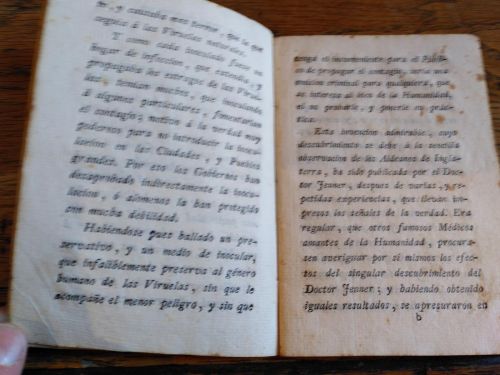 se, y causaba mas terror, que la que
seguia á las Viruelas naturales.
Y como cada inoculado fuese un
lugar de infeccion, que extendia, y
propagaba los estragos de las Virue-
las, temian muchos, que inoculando
á algunos particulares, fomentarian
el contagio; motivo á la verdad muy
poderoso para no introducir la inocu-
lacion en las Ciudades, y Pueblos
grandes. Por eso los Gobiernos han
desaprobado indirectamente la inocu-
lacion, ó alomenos la han protegido
con mucha debilidad.
Habiendose pues hallado un pre-
servativo, y un medio de inocular,
que infaliblemente preserva al género
humano de las Viruelas, sin que le
acompañe el menor peligro, y sin que
tenga el inconveniente para el Públi-
co de propagar el contagio, seria una
omision criminal para qualquiera, que
se interesa al bien de la Humanidad,
el no probarlo, y ponerlo en prác-
tica.
Esta invencion admirable, cuyo
descubrimiento se debe á la sencilla
observacion de los Aldeanos de Ingla-
terra, ha sido publicada por el Doc-
tor Jenner, despues de varias, y re-
petidas experiencias, que llevan im-
presos los señales de la verdad. Era
regular, que otros famosos Médicos
amantes de la Humanidad, procura-
sen averiguar por sí mismos los efec-
tos del singular descubrimiento del
Doctor Jenner; y habiendo obtenido
iguales resultados, se apresuraron en
b